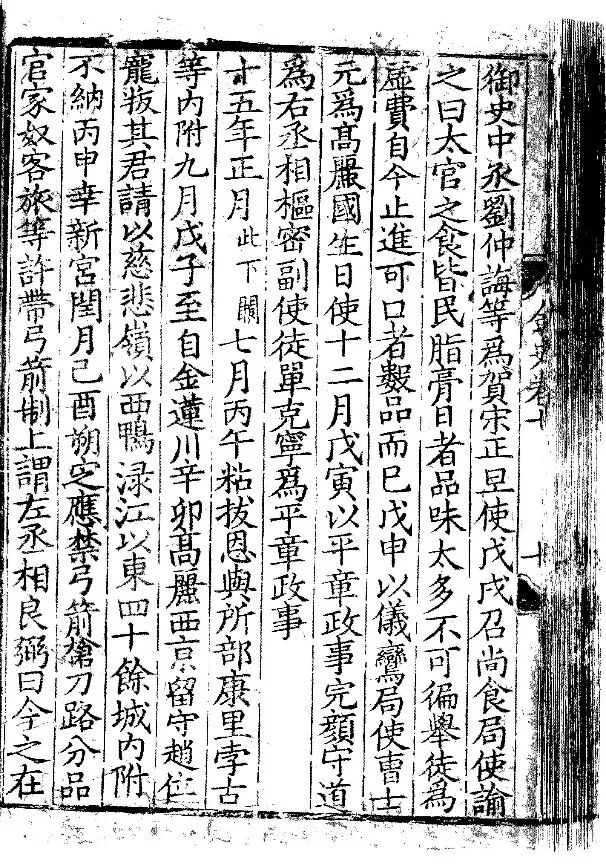 御史中丞劉仲誨等爲賀宋正旦使戊戌召尚食局使諭
之曰太官之食皆民脂膏日者品味太多不可徧舉徒爲
虛費自今止進可口者數品而已戊申以儀鸞局使曹士
元爲髙麗國生日使十二月戊寅以平章政事完顔守道
爲右丞相樞密副使徒單克寧爲平章政事
十五年正月此下闕七月丙午粘拔恩與所部康里孛古
等内附九月戊子至自金蓮川辛卯髙麗西京留守趙位
寵叛其君請以慈悲嶺以西鴨淥江以東四十餘城内附
不納丙申幸新宮閏月己酉朔定應禁弓箭槍刀路分品
官家奴客旅等許帶弓箭制上謂左丞相良弼曰今之在
金史卷十
十